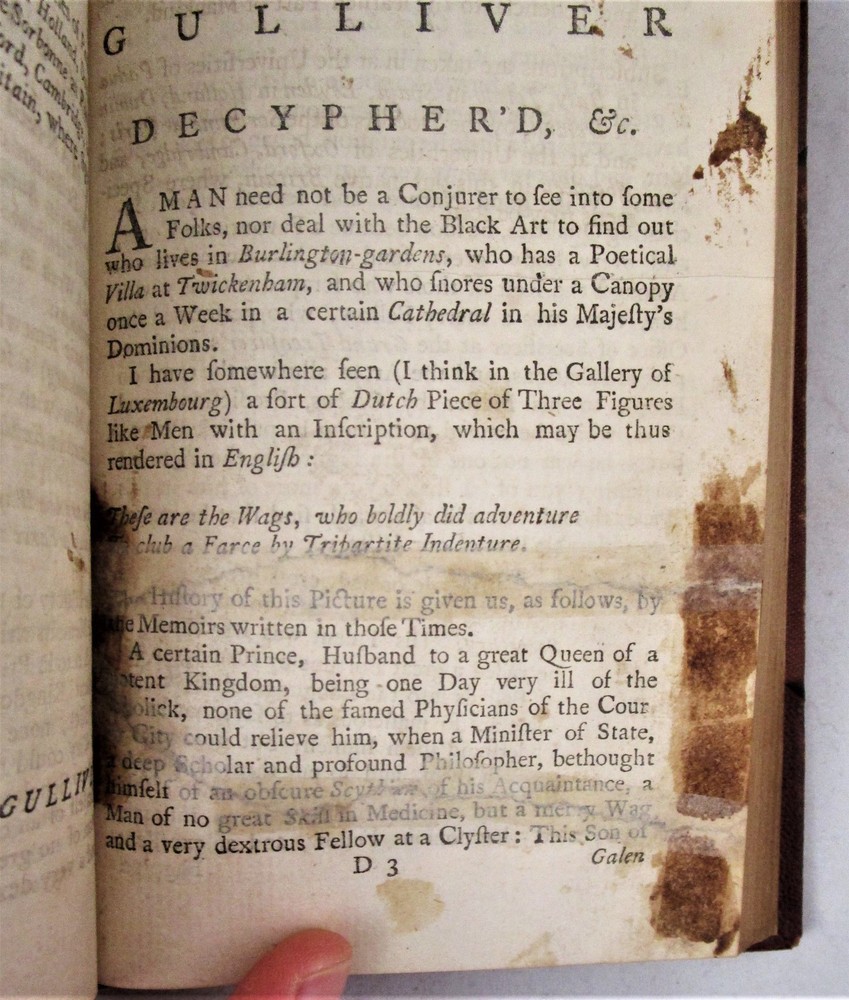 GULLIVER
DECYPHER'D, &c.
A MAN need not be a Conjurer to ſee into ſome
Folks, nor deal with the Black Art to find out
who lives in Burlington-gardens, who has a Poetical
Villa at Twickenham, and who ſnores under a Canopy
once a Week in a certain Cathedral in his Majeſty's
Dominions.
I have ſomewhere ſeen (I think in the Gallery of
Luxembourg) a ſort of Dutch Piece of Three Figures
like Men with an Inſcription, which may be thus
rendered in Engliſh:
Theſe are the Wags, who boldly did adventure
club a Farce by Tripartite Indenture.
Hiſtory of this Picture is given us, as follows, by
the Memoirs written in thoſe Times.
A certain Prince, Huſband to a great Queen of a
Kingdom, being one Day very ill of the
none of the famed Phyſicians of the Cour
City could relieve him, when a Miniſter of State,
a deep Scholar and profound Philoſopher, bethought
himſelf of an obſcure Scythian of his Acquaintance, a
Man of no great Skill in Medicine, but a merry Wag
and a very dextrous Fellow at a Clyſter: This Son of
D 3
Galen
Holland,
Sorbonne
Cambridge
where